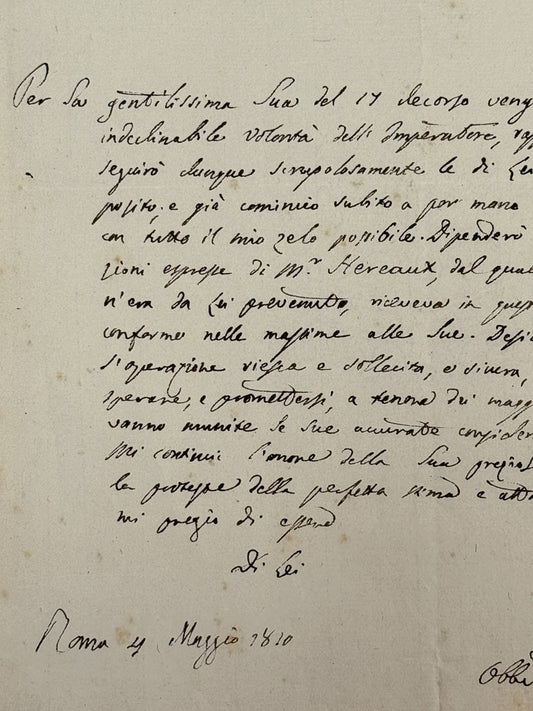 Per La gentilissima Sua del 17 decorso veng
indeclinabile volontà dell' Imperatore, rap
seguirò dunque scrupolosamente le di Lei
posito; e già comincio subito a por mano
con tutto il mio zelo possibile. Dipenderò
zioni espresse di M.r Hereaux, dal qual
n'era da Lei prevenuto, riceveva in ques
conforme nelle massime alle Sue. Desi
l'operazione riesca e sollecita, e sicura,
sperare, e promettersi, a tenore dei magg
vanno munite le Sue accurate consider
Mi continui l'onore della Sua prezios
le proteste della perfetta stima e atte
mi pregio di essere
Di Lei
Roma 4 Maggio 1810
Obb